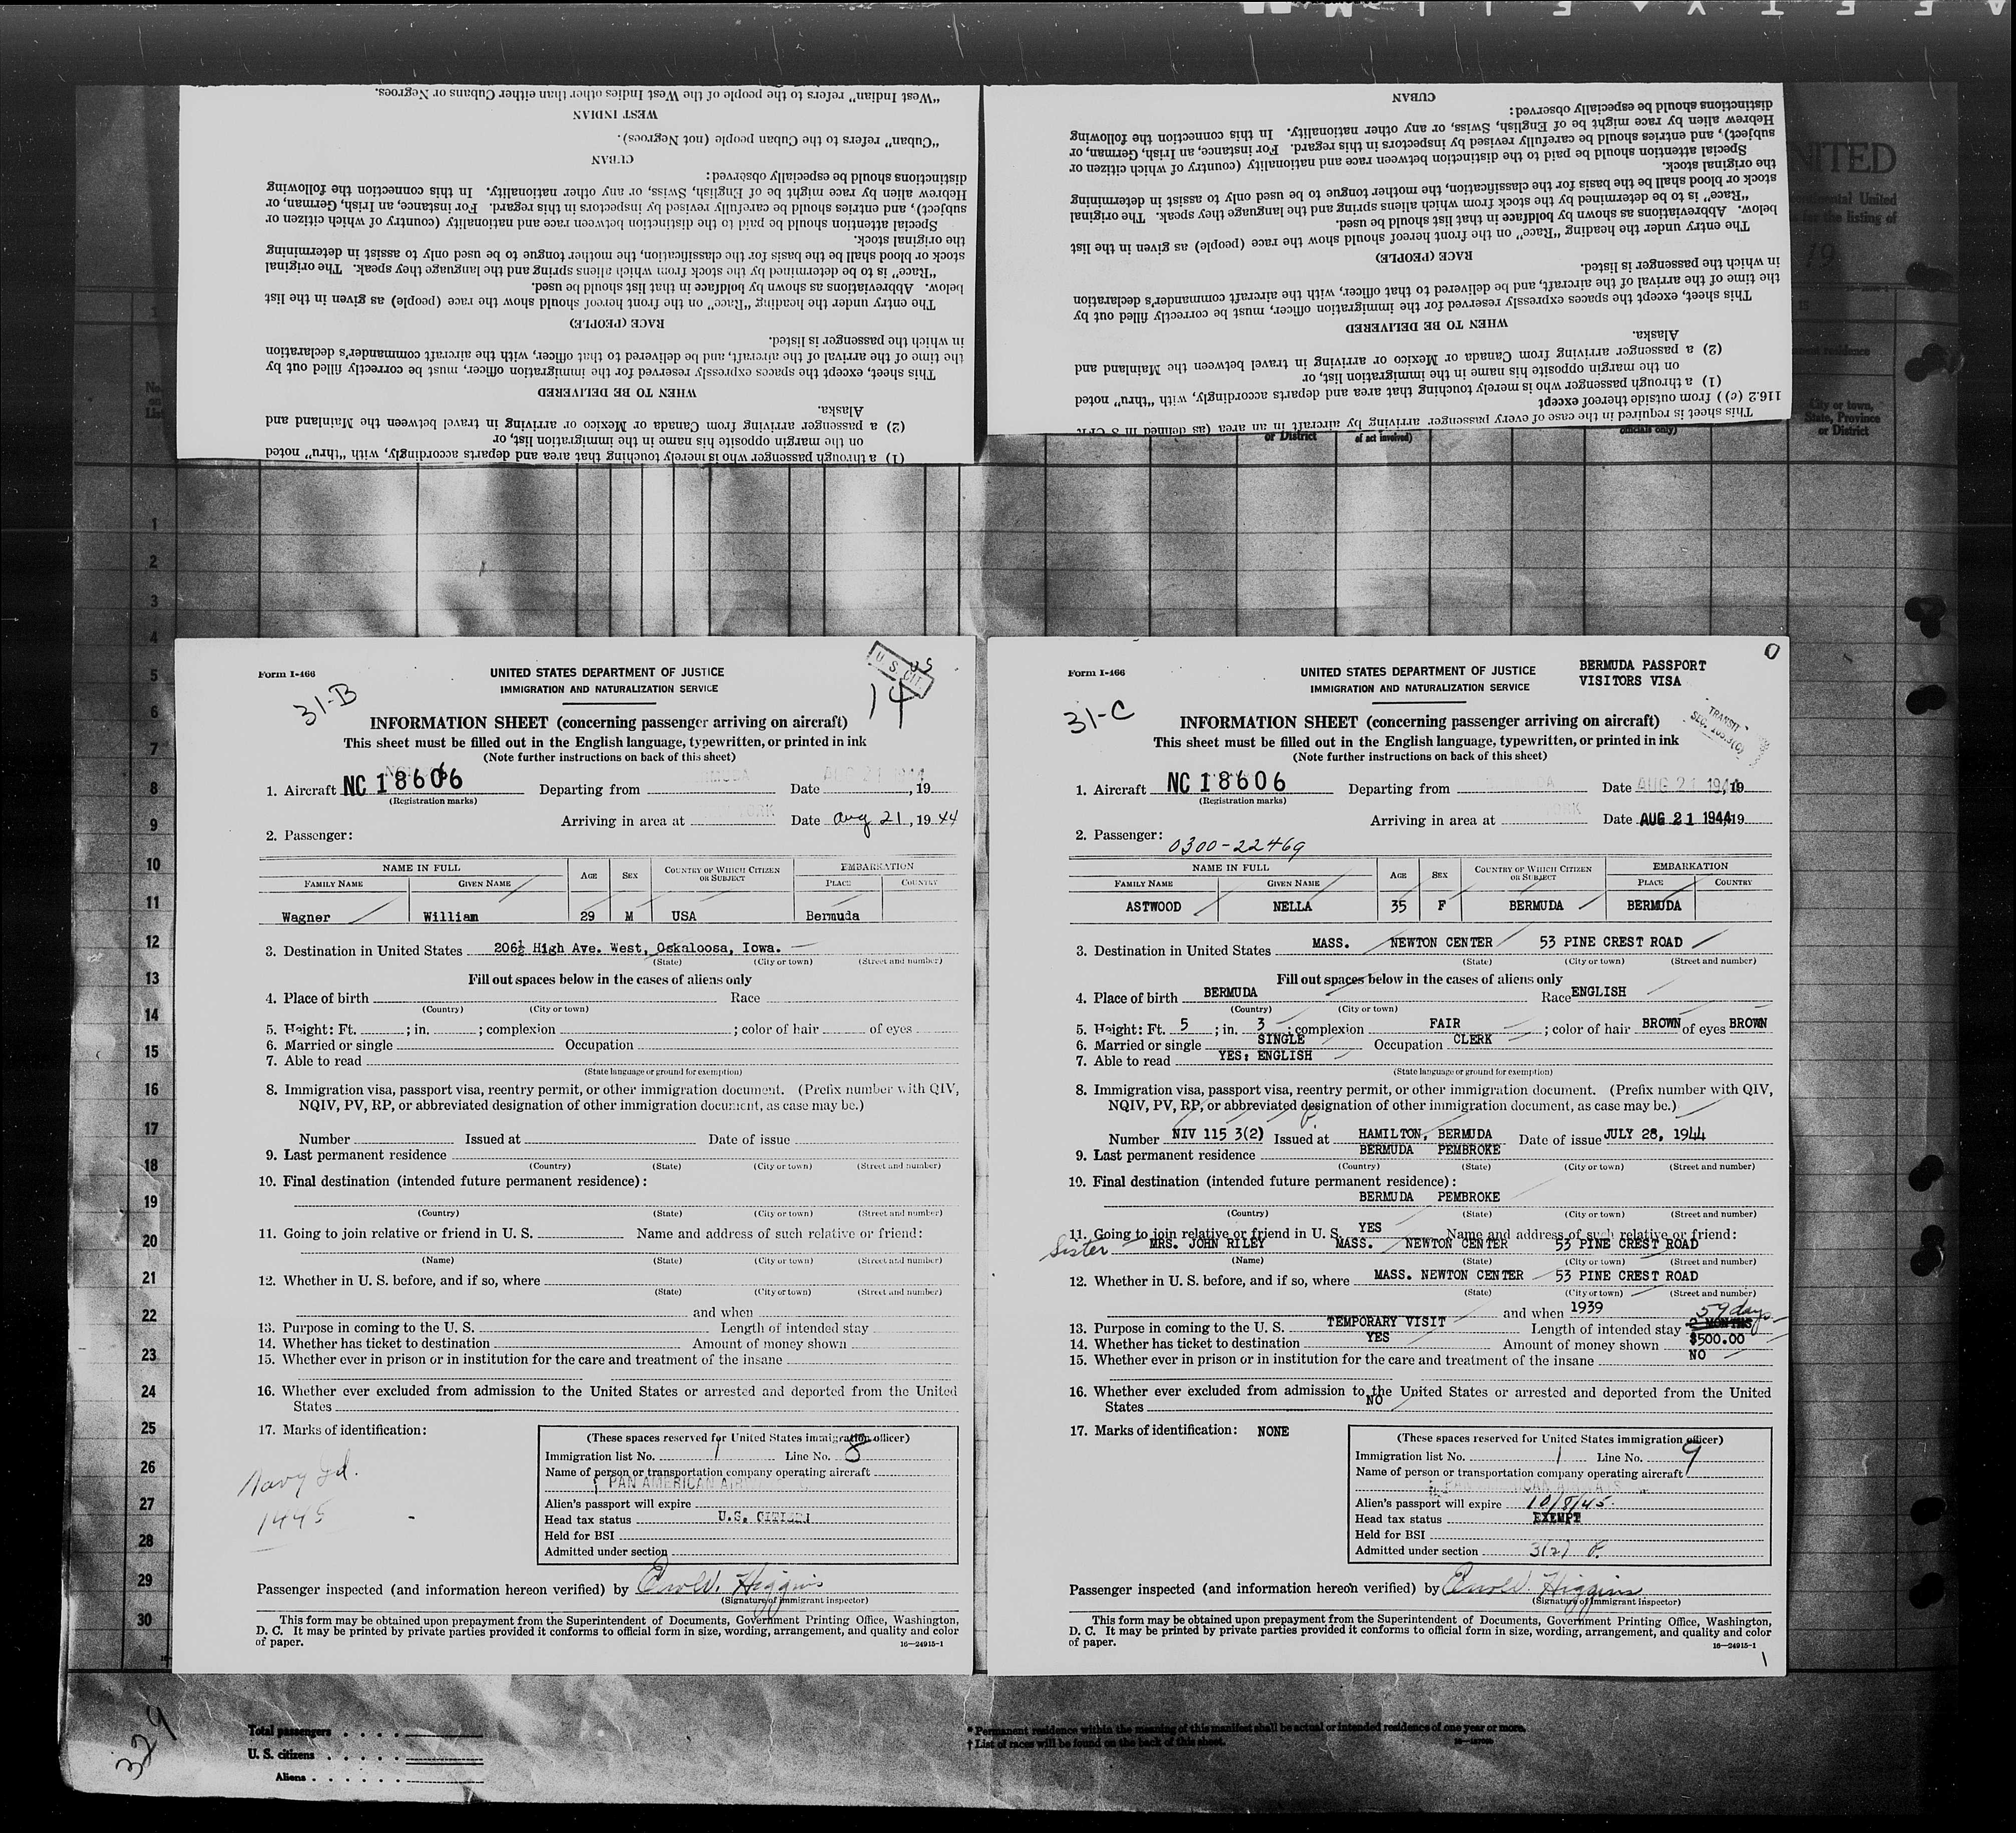 "West Indian" refers to the people of the West Indies other than either Cubans or Negroes.
WEST INDIAN
"Cuban" refers to the Cuban people (not Negroes).
CUBAN
distinctions should be especially observed:
Hebrew alien by race might be of English, Swiss, or any other nationality. In this connection the following
subject), and entries should be carefully revised by inspectors in this regard. For instance, an Irish, German, or
Special attention should be paid to the distinction between race and nationality (country of which citizen or
the original stock.
stock or blood shall be the basis for the classification, the mother tongue to be used only to assist in determining
"Race" is to be determined by the stock from which aliens spring and the language they speak. The original
below. Abbreviations as shown by boldface in that list should be used.
The entry under the heading "Race" on the front hereof should show the race (people) as given in the list
RACE (PEOPLE)
in which the passenger is listed.
the time of the arrival of the aircraft, and be delivered to that officer, with the aircraft commander's declaration
This sheet, except the spaces expressly reserved for the immigration officer, must be correctly filled out by
WHEN TO BE DELIVERED
Alaska.
(2) a passenger arriving from Canada or Mexico or arriving in travel between the Mainland and
on the margin opposite his name in the immigration list, or
(1) a through passenger who is merely touching that area and departs accordingly, with "thru" noted
CUBAN
distinctions should be especially observed:
Hebrew alien by race might be of English, Swiss, or any other nationality. In this connection the following
subject), and entries should be carefully revised by inspectors in this regard. For instance, an Irish, German, or
Special attention should be paid to the distinction between race and nationality (country of which citizen or
the original stock.
stock or blood shall be the basis for the classification, the mother tongue to be used only to assist in determining
"Race" is to be determined by the stock from which aliens spring and the language they speak. The original
below. Abbreviations as shown by boldface in that list should be used.
The entry under the heading "Race" on the front hereof should show the race (people) as given in the list
RACE (PEOPLE)
in which the passenger is listed.
the time of the arrival of the aircraft, and be delivered to that officer, with the aircraft commander's declaration
This sheet, except the spaces expressly reserved for the immigration officer, must be correctly filled out by
WHEN TO BE DELIVERED
Alaska.
(2) a passenger arriving from Canada or Mexico or arriving in travel between the Mainland and
on the margin opposite his name in the immigration list, or
(1) a through passenger who is merely touching that area and departs accordingly, with "thru" noted
116.2 (c)) from outside thereof except
This sheet is required in the case of every passenger arriving by aircraft in an area (as defined in 8 CFR
NITED
United
for the listing of
19
City or town,
State, Province
or District
or District
of act involved)
officials only)
No.
on
List
1
2
3
4
5
6
7
8
9
10
11
12
13
14
15
16
17
18
19
20
21
22
23
24
25
26
27
28
29
30
Form I-466
31-B
UNITED STATES DEPARTMENT OF JUSTICE
IMMIGRATION AND NATURALIZATION SERVICE
U S CIT.
US
14
INFORMATION SHEET (concerning passenger arriving on aircraft)
This sheet must be filled out in the English language, typewritten, or printed in ink
(Note further instructions on back of this sheet)
1. Aircraft NC 18606 Departing from Date AUG 21 1944, 19
(Registration marks)
Arriving in area at Date Aug 21, 1944
2. Passenger:
NAME IN FULL
FAMILY NAME GIVEN NAME AGE SEX COUNTRY OF WHICH CITIZEN OR SUBJECT EMBARKATION PLACE COUNTRY
Wagner William 29 M USA Bermuda
3. Destination in United States 206½ High Ave. West, Oskaloosa, Iowa.
(State) (City or town) (Street and number)
Fill out spaces below in the cases of aliens only
4. Place of birth Race
(Country) (City or town)
5. Height: Ft. ; in. ; complexion ; color of hair of eyes
6. Married or single Occupation
7. Able to read
(State language or ground for exemption)
8. Immigration visa, passport visa, reentry permit, or other immigration document. (Prefix number with QIV,
NQIV, PV, RP, or abbreviated designation of other immigration document, as case may be.)
Number Issued at Date of issue
9. Last permanent residence
(Country) (State) (City or town) (Street and number)
10. Final destination (intended future permanent residence):
(Country) (State) (City or town) (Street and number)
11. Going to join relative or friend in U. S. Name and address of such relative or friend:
(Name) (State) (City or town) (Street and number)
12. Whether in U. S. before, and if so, where
(State) (City or town) (Street and number)
and when
13. Purpose in coming to the U. S. Length of intended stay
14. Whether has ticket to destination Amount of money shown
15. Whether ever in prison or in institution for the care and treatment of the insane
16. Whether ever excluded from admission to the United States or arrested and deported from the United
States
17. Marks of identification:
Navy Jd.
1445
(These spaces reserved for United States immigration officer)
Immigration list No. 1 Line No. 8
Name of person or transportation company operating aircraft
PAN AMERICAN
Alien's passport will expire
Head tax status U.S. CITIZEN
Held for BSI
Admitted under section
Passenger inspected (and information hereon verified) by Higgins
(Signature of immigrant inspector)
This form may be obtained upon prepayment from the Superintendent of Documents, Government Printing Office, Washington,
D. C. It may be printed by private parties provided it conforms to official form in size, wording, arrangement, and quality and color
of paper.
16—24915-1
Form I-466
31-C
UNITED STATES DEPARTMENT OF JUSTICE
IMMIGRATION AND NATURALIZATION SERVICE
BERMUDA PASSPORT
VISITORS VISA
0
TRANSIT
SEC. 105.3(C)
INFORMATION SHEET (concerning passenger arriving on aircraft)
This sheet must be filled out in the English language, typewritten, or printed in ink
(Note further instructions on back of this sheet)
1. Aircraft NC 18606 Departing from Date AUG 21 1944, 19
(Registration marks)
Arriving in area at Date AUG 21 1944, 19
2. Passenger: 0300-22469
NAME IN FULL
FAMILY NAME GIVEN NAME AGE SEX COUNTRY OF WHICH CITIZEN OR SUBJECT EMBARKATION PLACE COUNTRY
ASTWOOD NELLA 35 F BERMUDA BERMUDA
3. Destination in United States MASS. NEWTON CENTER 53 PINE CREST ROAD
(State) (City or town) (Street and number)
Fill out spaces below in the cases of aliens only
4. Place of birth BERMUDA Race ENGLISH
(Country) (City or town)
5. Height: Ft. 5 ; in. 3 ; complexion FAIR ; color of hair BROWN of eyes BROWN
6. Married or single SINGLE Occupation CLERK
7. Able to read YES; ENGLISH
(State language or ground for exemption)
8. Immigration visa, passport visa, reentry permit, or other immigration document. (Prefix number with QIV,
NQIV, PV, RP, or abbreviated designation of other immigration document, as case may be.)
Number NIV 115 3(2) Issued at HAMILTON, BERMUDA Date of issue JULY 28, 1944
9. Last permanent residence BERMUDA PEMBROKE
(Country) (State) (City or town) (Street and number)
10. Final destination (intended future permanent residence):
BERMUDA PEMBROKE
(Country) (State) (City or town) (Street and number)
11. Going to join relative or friend in U. S. YES Name and address of such relative or friend:
Sister MRS. JOHN RILEY MASS. NEWTON CENTER 53 PINE CREST ROAD
(Name) (State) (City or town) (Street and number)
12. Whether in U. S. before, and if so, where MASS. NEWTON CENTER 53 PINE CREST ROAD
(State) (City or town) (Street and number)
and when 1939
13. Purpose in coming to the U. S. TEMPORARY VISIT Length of intended stay 2 MONTHS 59 days
14. Whether has ticket to destination YES Amount of money shown $500.00
15. Whether ever in prison or in institution for the care and treatment of the insane NO
16. Whether ever excluded from admission to the United States or arrested and deported from the United
States NO
17. Marks of identification: NONE
(These spaces reserved for United States immigration officer)
Immigration list No. 1 Line No. 9
Name of person or transportation company operating aircraft
PAN AMERICAN AIRWAYS
Alien's passport will expire 10/8/45
Head tax status EXEMPT
Held for BSI
Admitted under section 3(2)
Passenger inspected (and information hereon verified) by Higgins
(Signature of immigrant inspector)
This form may be obtained upon prepayment from the Superintendent of Documents, Government Printing Office, Washington,
D. C. It may be printed by private parties provided it conforms to official form in size, wording, arrangement, and quality and color
of paper.
16—24915-1
1
329
Total passengers
U. S. citizens
Aliens
* Permanent residence within the meaning of this manifest shall be actual or intended residence of one year or more.
† List of races will be found on the back of this sheet.